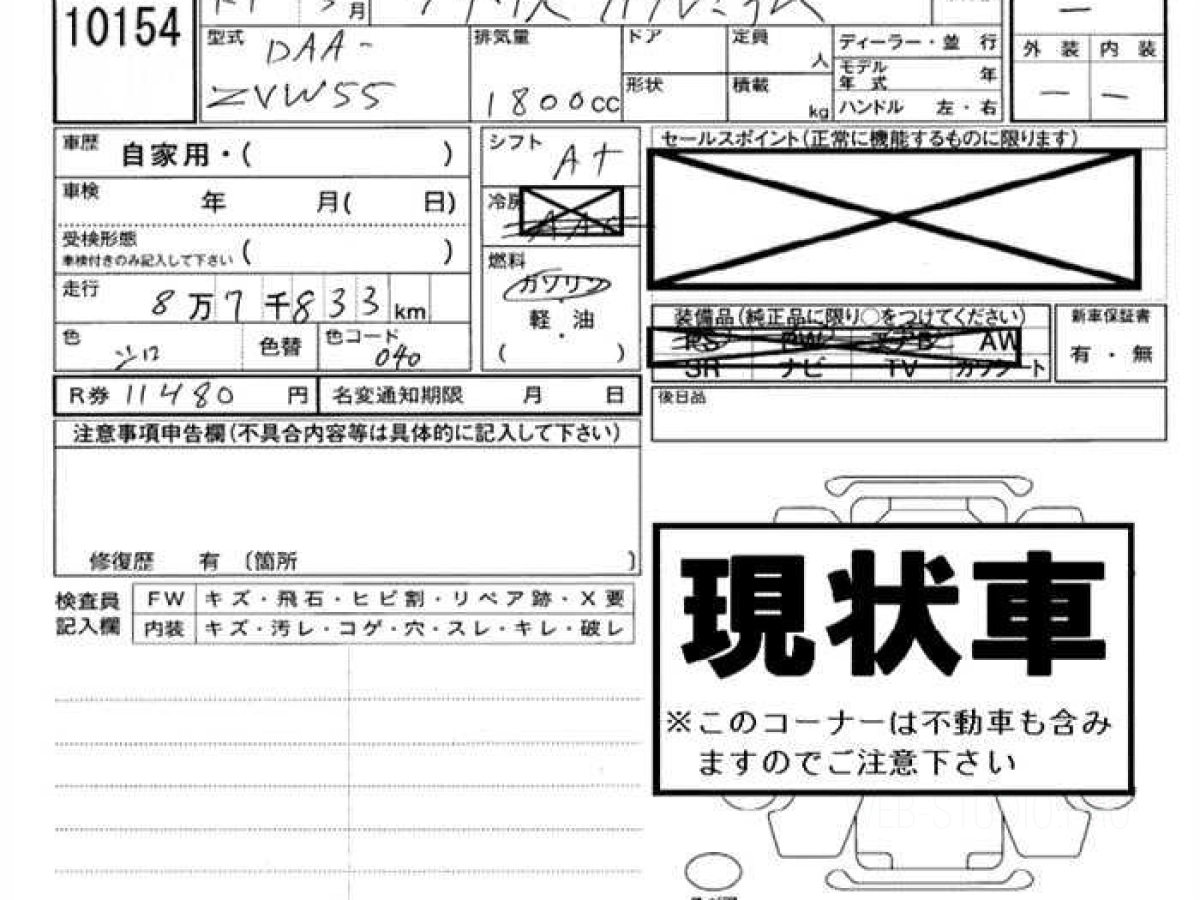 10154
月
型式 DAA-
ZVW55
排気量
1800cc
ドア
定員
人
形状
積載
kg
ディーラー・並 行
モデル
年 式
年
ハンドル 左・右
外 装 内 装
— —
車歴
自家用・( )
車検
年 月( 日)
受検形態
車検付きのみ記入して下さい ( )
走行
8万7千833km
色
色替
色コード
040
シフト
AT
冷房
AAC
燃料
ガソリン
・
軽 油
・
( )
セールスポイント(正常に機能するものに限ります)
装備品(純正品に限り○をつけてください)
PS PW エアB AW
SR ナビ TV カワシート
新車保証書
有 ・ 無
R券 11480 円
名変通知期限 月 日
後日品
注意事項申告欄(不具合内容等は具体的に記入して下さい)
修復歴 有 〔箇所 〕
検査員
記入欄
FW キズ・飛石・ヒビ割・リペア跡・X要
内装 キズ・汚レ・コゲ・穴・スレ・キレ・破レ
現状車
※このコーナーは不動車も含み
ますのでご注意下さい